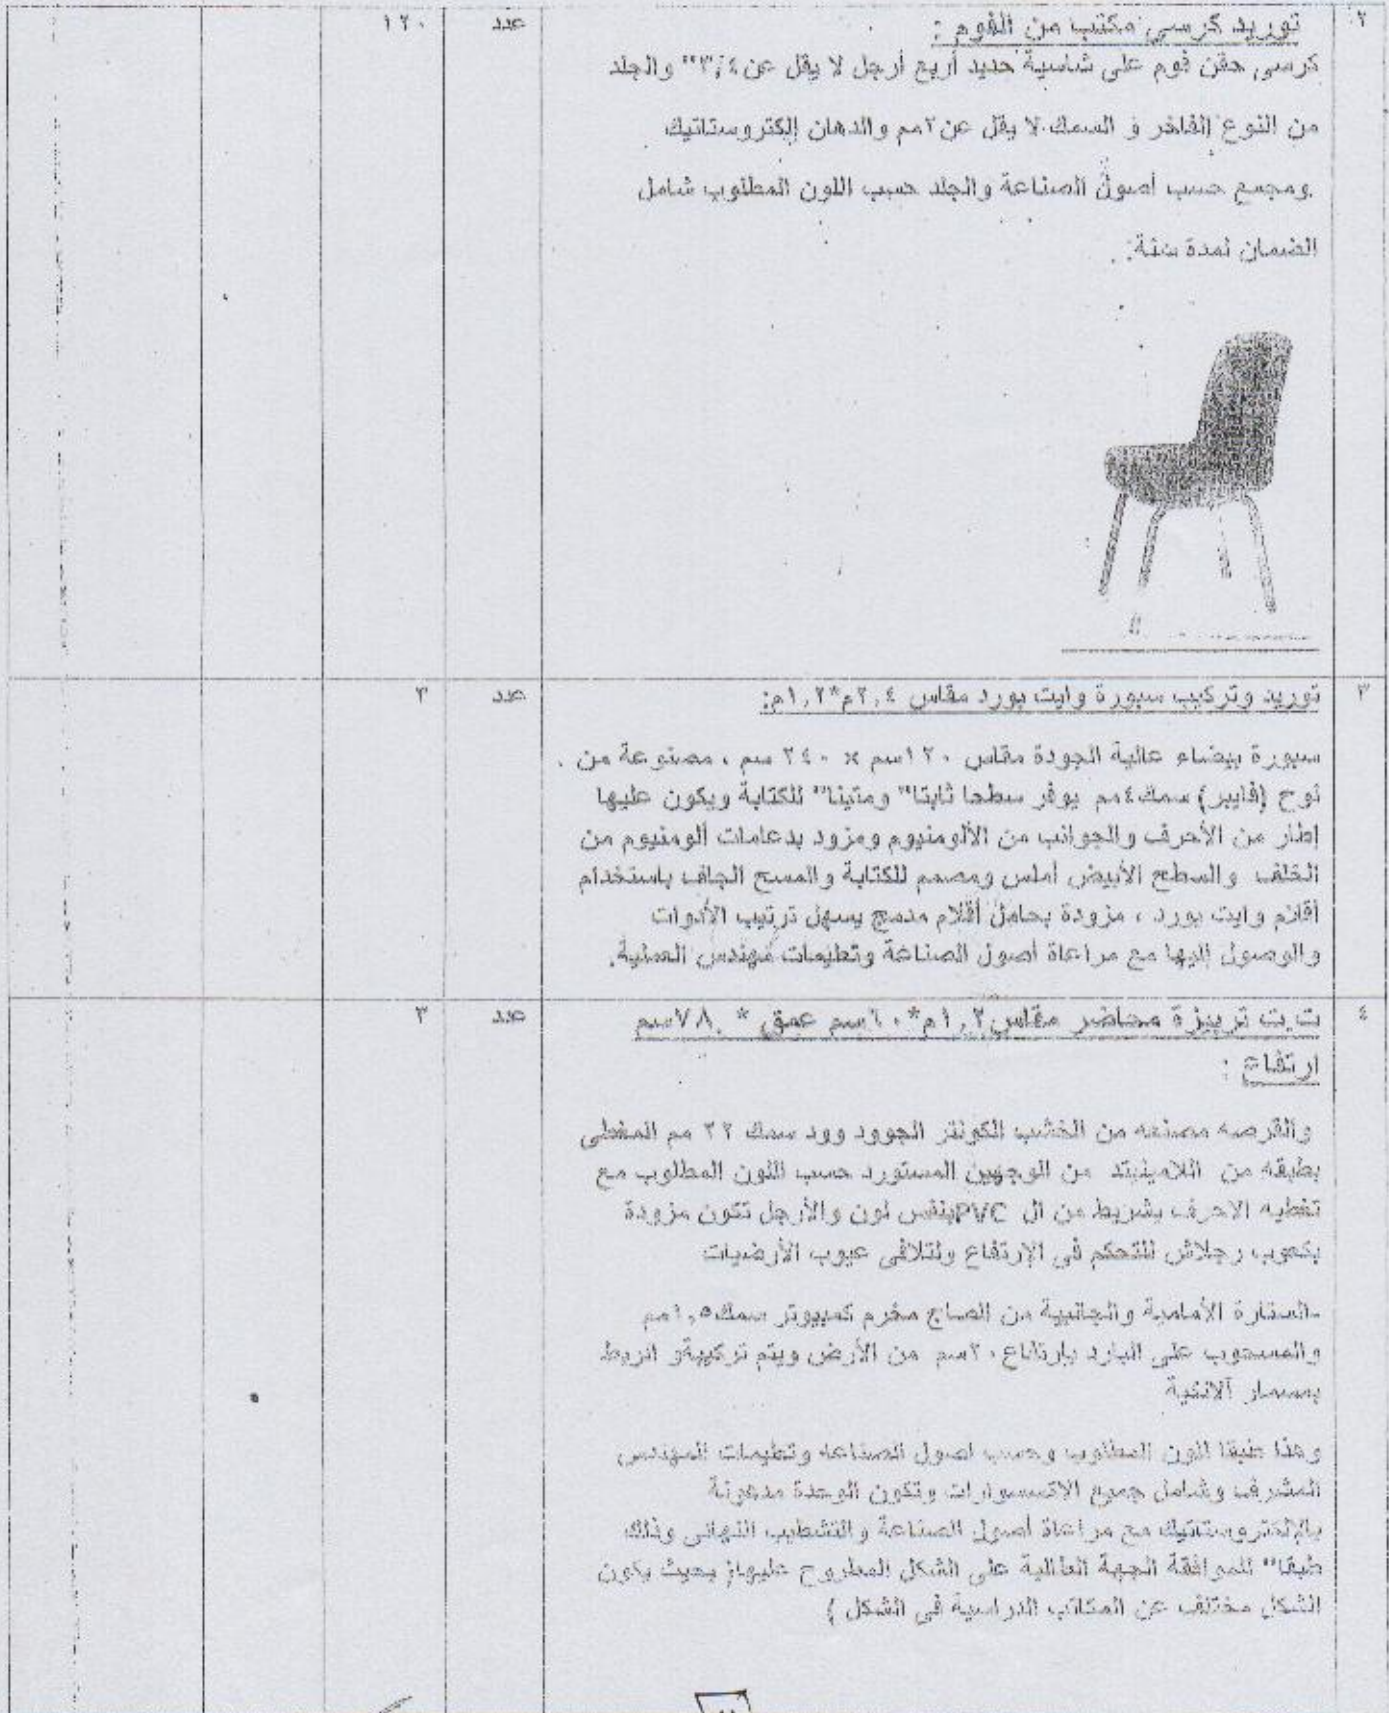 ٢ توريد كرسي مكتب من الفوم : عدد ١٢٠
كرسى حقن فوم على شاسية حديد أربع أرجل لا يقل عن ٣/٤" والجلد
من النوع الفاخر و السمك لا يقل عن ٢مم والدهان إلكتروستاتيك
ومجمع حسب أصول الصناعة والجلد حسب اللون المطلوب شامل
الضمان لمدة سنة.
٣ توريد وتركيب سبورة وايت بورد مقاس ٢,٤م*١,٢م: عدد ٣
سبورة بيضاء عالية الجودة مقاس ١٢٠سم × ٢٤٠ سم ، مصنوعة من
لوح (فايبر) سمك٤مم يوفر سطحا ثابتا" ومتينا" للكتابة ويكون عليها
إطار من الأحرف والجوانب من الألومنيوم ومزود بدعامات ألومنيوم من
الخلف والسطح الأبيض أملس ومصمم للكتابة والمسح الجاف باستخدام
أقلام وايت بورد ، مزودة بحامل أقلام مدمج يسهل ترتيب الأدوات
والوصول إليها مع مراعاة أصول الصناعة وتعليمات مهندس العملية.
٤ ت.ت تربيزة محاضر مقاس١,٢م*٦٠سم عمق * ٧٨سم عدد ٣
ارتفاع :
والقرصه مصنعه من الخشب الكونتر الجوود وود سمك ٢٢ مم المغطى
بطبقه من اللامينيتد من الوجهين المستورد حسب اللون المطلوب مع
تغطيه الاحرف بشريط من ال PVCبنفس لون والأرجل تكون مزودة
بكعوب رجلاش للتحكم فى الإرتفاع ولتلافى عيوب الأرضيات
-الستارة الأمامية والجانبية من الصاج مخرم كمبيوتر سمك١,٥مم
والمسحوب على البارد بإرتفاع ٢٠سم من الأرض ويتم تركيبةو الربط
بمسمار آلانتية
وهذا طبقا للون المطلوب وحسب اصول الصناعه وتعليمات المهندس
المشرف وشامل جميع الاكسسوارات وتكون الوحدة مدهونة
بالإلكتروستاتيك مع مراعاة أصول الصناعة والتشطيب النهائى وذلك
طبقا" للموافقة الجهة الطالبة على الشكل المطروح عليها( بحيث يكون
الشكل مختلف عن المكاتب الدراسية فى الشكل )